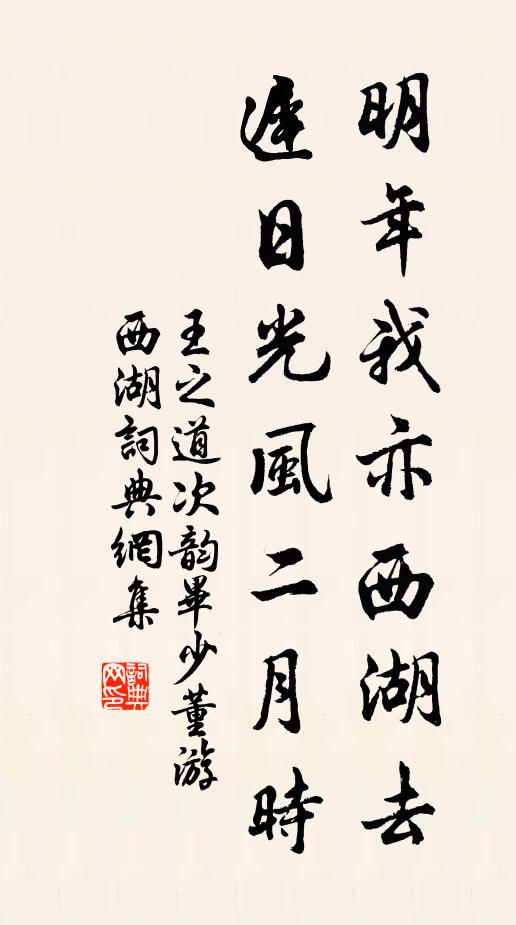 明年我亦西湖去
遲日光風二月時
王之道次韵畢少董游
西湖詞典網集
詞典
网印